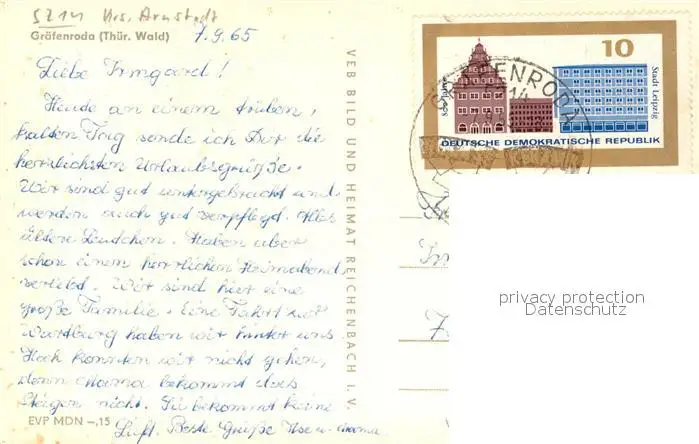 5214 Krs. Arnstadt
Gräfenroda (Thür. Wald) 7.9.65
Liebe Irmgard!
Heute an einem trüben,
kalten Tag sende ich Dir die
herrlichsten Urlaubsgrüße.
Wir sind gut untergebracht und
werden auch gut verpflegt. Alles
ältere Leutchen. Haben aber
schon einen herrlichen Heimabend
verlebt. Wir sind hier eine
große Familie. Eine Fahrt zur
Wartburg haben wir hinter uns
Hoch konnten wir nicht gehen,
denn Mama bekommt das
Steigen nicht. Sie bekommt keine
Luft. Beste Grüße Ilse u. Mama
EVP MDN –,15
VEB BILD UND HEIMAT REICHENBACH I. V.
10
Stadt Leipzig
DEUTSCHE DEMOKRATISCHE REPUBLIK
GRÄFENRODA
privacy protection
Datenschutz